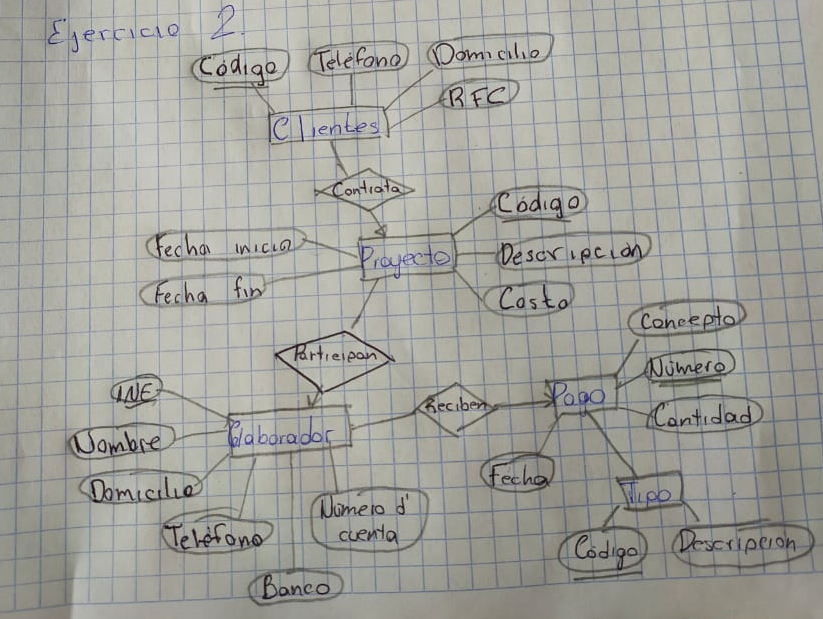 Ejercicio 2.
Código
Teléfono
Domicilio
RFC
Clientes
Contrata
Código
Fecha inicio
Proyecto
Descripción
Fecha fin
Costo
Concepto
Participan
Número
INE
Reciben
Pago
Cantidad
Nombre
Colaborador
Domicilio
Fecha
Tipo
Teléfono
Número d'
cuenta
Código
Descripción
Banco